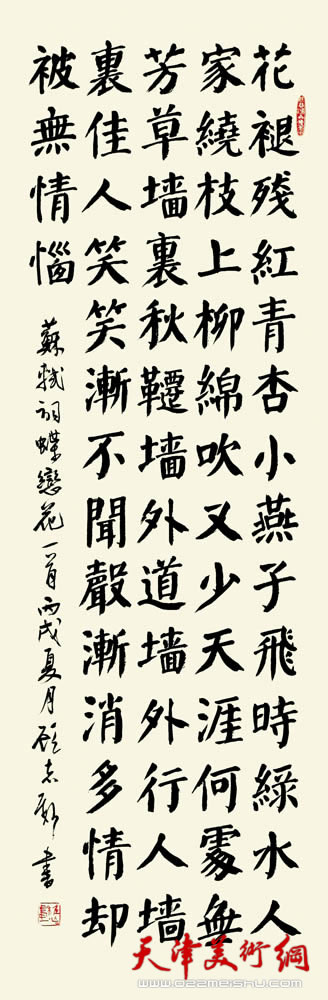 花褪残紅青杏小燕子飛時綠水人
家繞枝上柳綿吹又少天涯何處無
芳草墙裏秋韆墙外道墙外行人墙
裏佳人笑笑漸不聞聲漸消多情却
被無情惱
蘇軾詞蝶戀花一首丙戌夏月顧志新書
天津美術網
www.022meishu.com